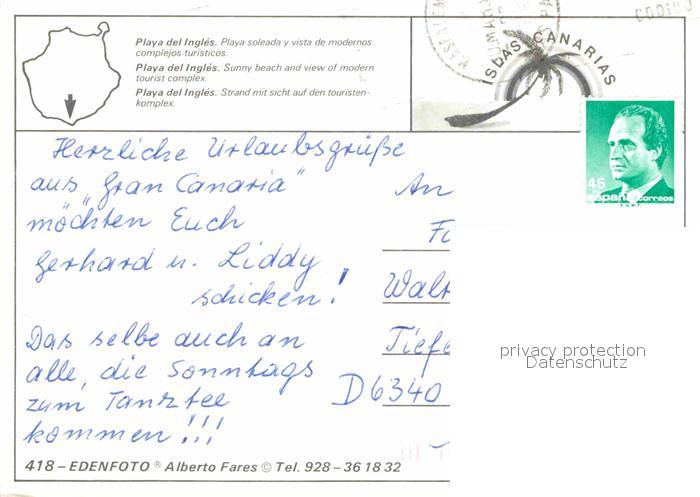 Playa del Inglés. Playa soleada y vista de modernos
complejos turísticos.
Playa del Inglés. Sunny beach and view of modern
tourist complex.
Playa del Inglés. Strand mit sicht auf den touristen-
komplex.
ISLAS CANARIAS
CODIGO
45
españa correos
Herzliche Urlaubsgrüße
aus „Gran Canaria"
möchten Euch
Gerhard u. Liddy
schicken!
Das selbe auch an
alle, die Sonntags
zum Tanztee
kommen!!!
An
D 6340
privacy protection
Datenschutz
418 – EDENFOTO ® Alberto Fares © Tel. 928 – 36 18 32